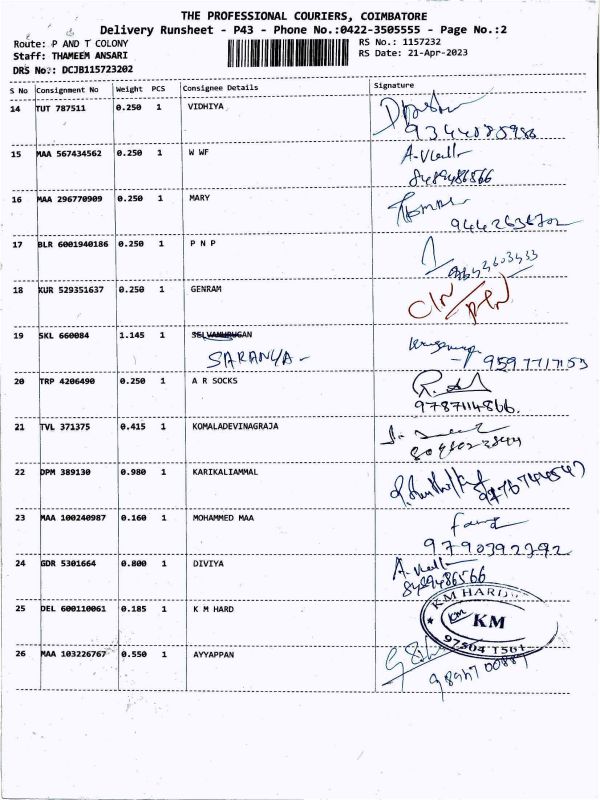 THE PROFESSIONAL COURIERS, COIMBATORE
Delivery Runsheet - P43 - Phone No.:0422-3505555 - Page No.:2
Route: P AND T COLONY RS No.: 1157232
Staff: THAMEEM ANSARI RS Date: 21-Apr-2023
DRS No.: DCJB115723202
S No Consignment No Weight PCS Consignee Details Signature
14 TUT 787511 0.250 1 VIDHIYA
15 MAA 567434562 0.250 1 W WF
8489486566
16 MAA 296770909 0.250 1 MARY
17 BLR 6001940186 0.250 1 P N P
18 KUR 529351637 0.250 1 GENRAM
19 SKL 660084 1.145 1 SELVAMURUGAN
SARANYA - 9597717153
20 TRP 4206490 0.250 1 A R SOCKS
9787114866.
21 TVL 371375 0.415 1 KOMALADEVINAGRAJA
22 DPM 389130 0.980 1 KARIKALIAMMAL
23 MAA 100240987 0.160 1 MOHAMMED MAA
9790392292
24 GDR 5301664 0.800 1 DIVIYA
8489486566
25 DEL 600110061 0.185 1 K M HARD
KM HARD
KM
26 MAA 103226767 0.550 1 AYYAPPAN